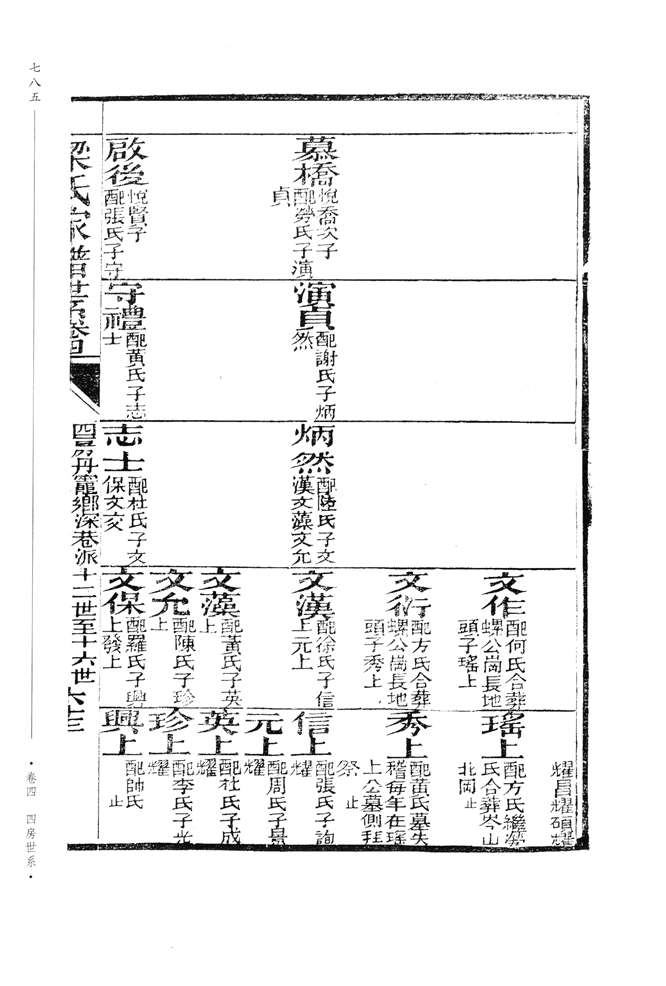 七八五
慕橋
悅喬次子
配勞氏子演
貞
啟後
悅賢子
配張氏子守
演貞
配謝氏子炳
然
守禮
配黃氏子志
士
炳然
配陸氏子文
漢文藻文允
志士
配杜氏子文
保文交
文作
配何氏合葬
螺公崗長地
頭子瑤上
文衍
配方氏合葬
螺公崗長地
頭子秀上
文漢
配徐氏子信
上元上
文藻
配黃氏子英
上
文允
配陳氏子珍
上
文保
配羅氏子興
上發上
耀昌耀碩耀
瑤上
配方氏繼勞
氏合葬岑山
北岡 止
秀上
配黃氏墓失
稽每年在瑤
上公墓側拜
祭 止
信上
配張氏子詢
耀
元上
配周氏子景
耀
英上
配杜氏子成
耀
珍上
配李氏子光
耀
興上
配帥氏
止
梁氏家譜世系卷四
四房丹竈鄉深巷派十二世至十六世 六十三
•卷四 四房世系•